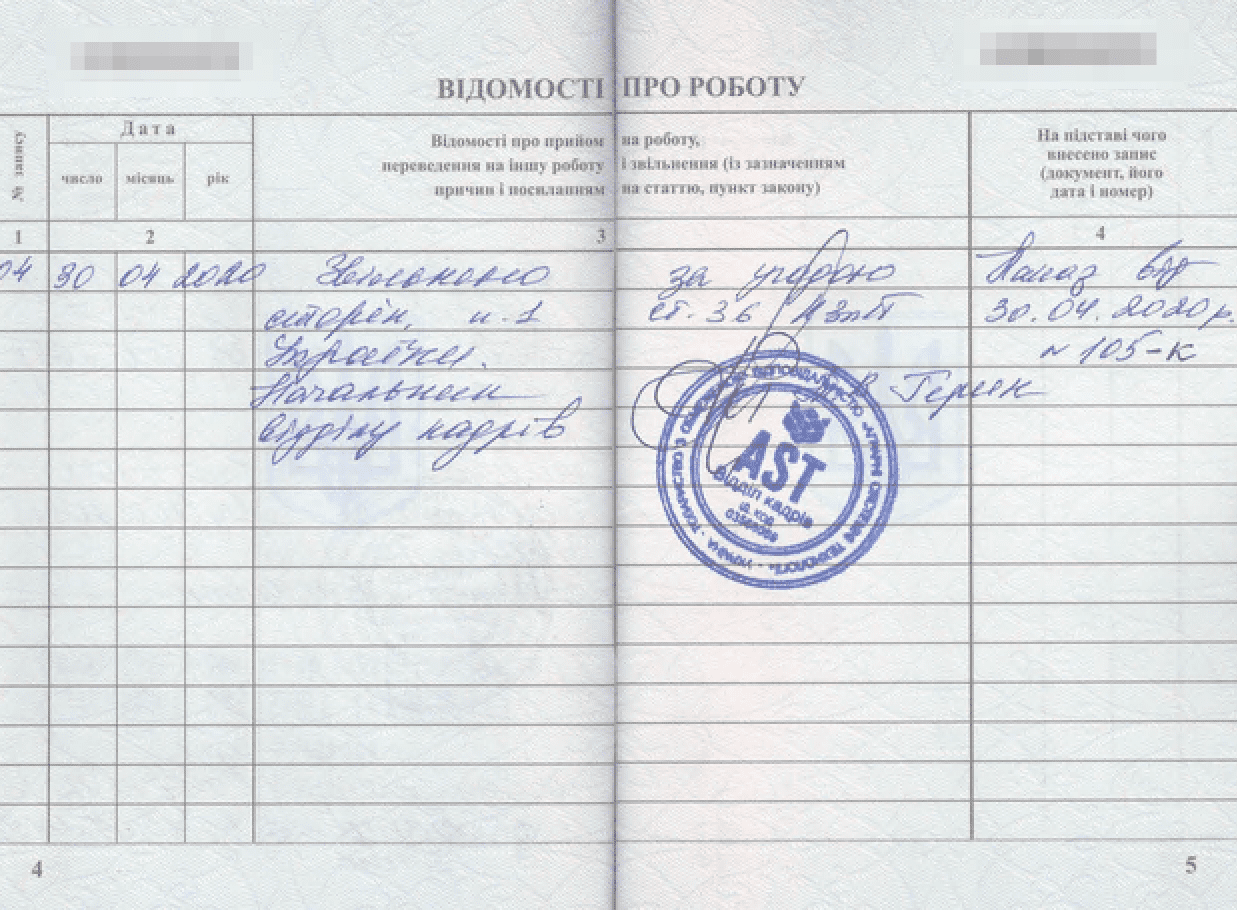 ВІДОМОСТІ ПРО РОБОТУ
№ запису
Дата
число місяць рік
Відомості про прийом на роботу,
переведення на іншу роботу і звільнення (із зазначенням
причин і посиланням на статтю, пункт закону)
На підставі чого
внесено запис
(документ, його
дата і номер)
1 2 3 4
04 30 04 2020 Звільнено за угодою Наказ від
сторін, п.1 ст. 36 КЗпП 30.04.2020р.
України. №105-к
Начальник
відділу кадрів
AST
Відділ кадрів
ід. код
4 5